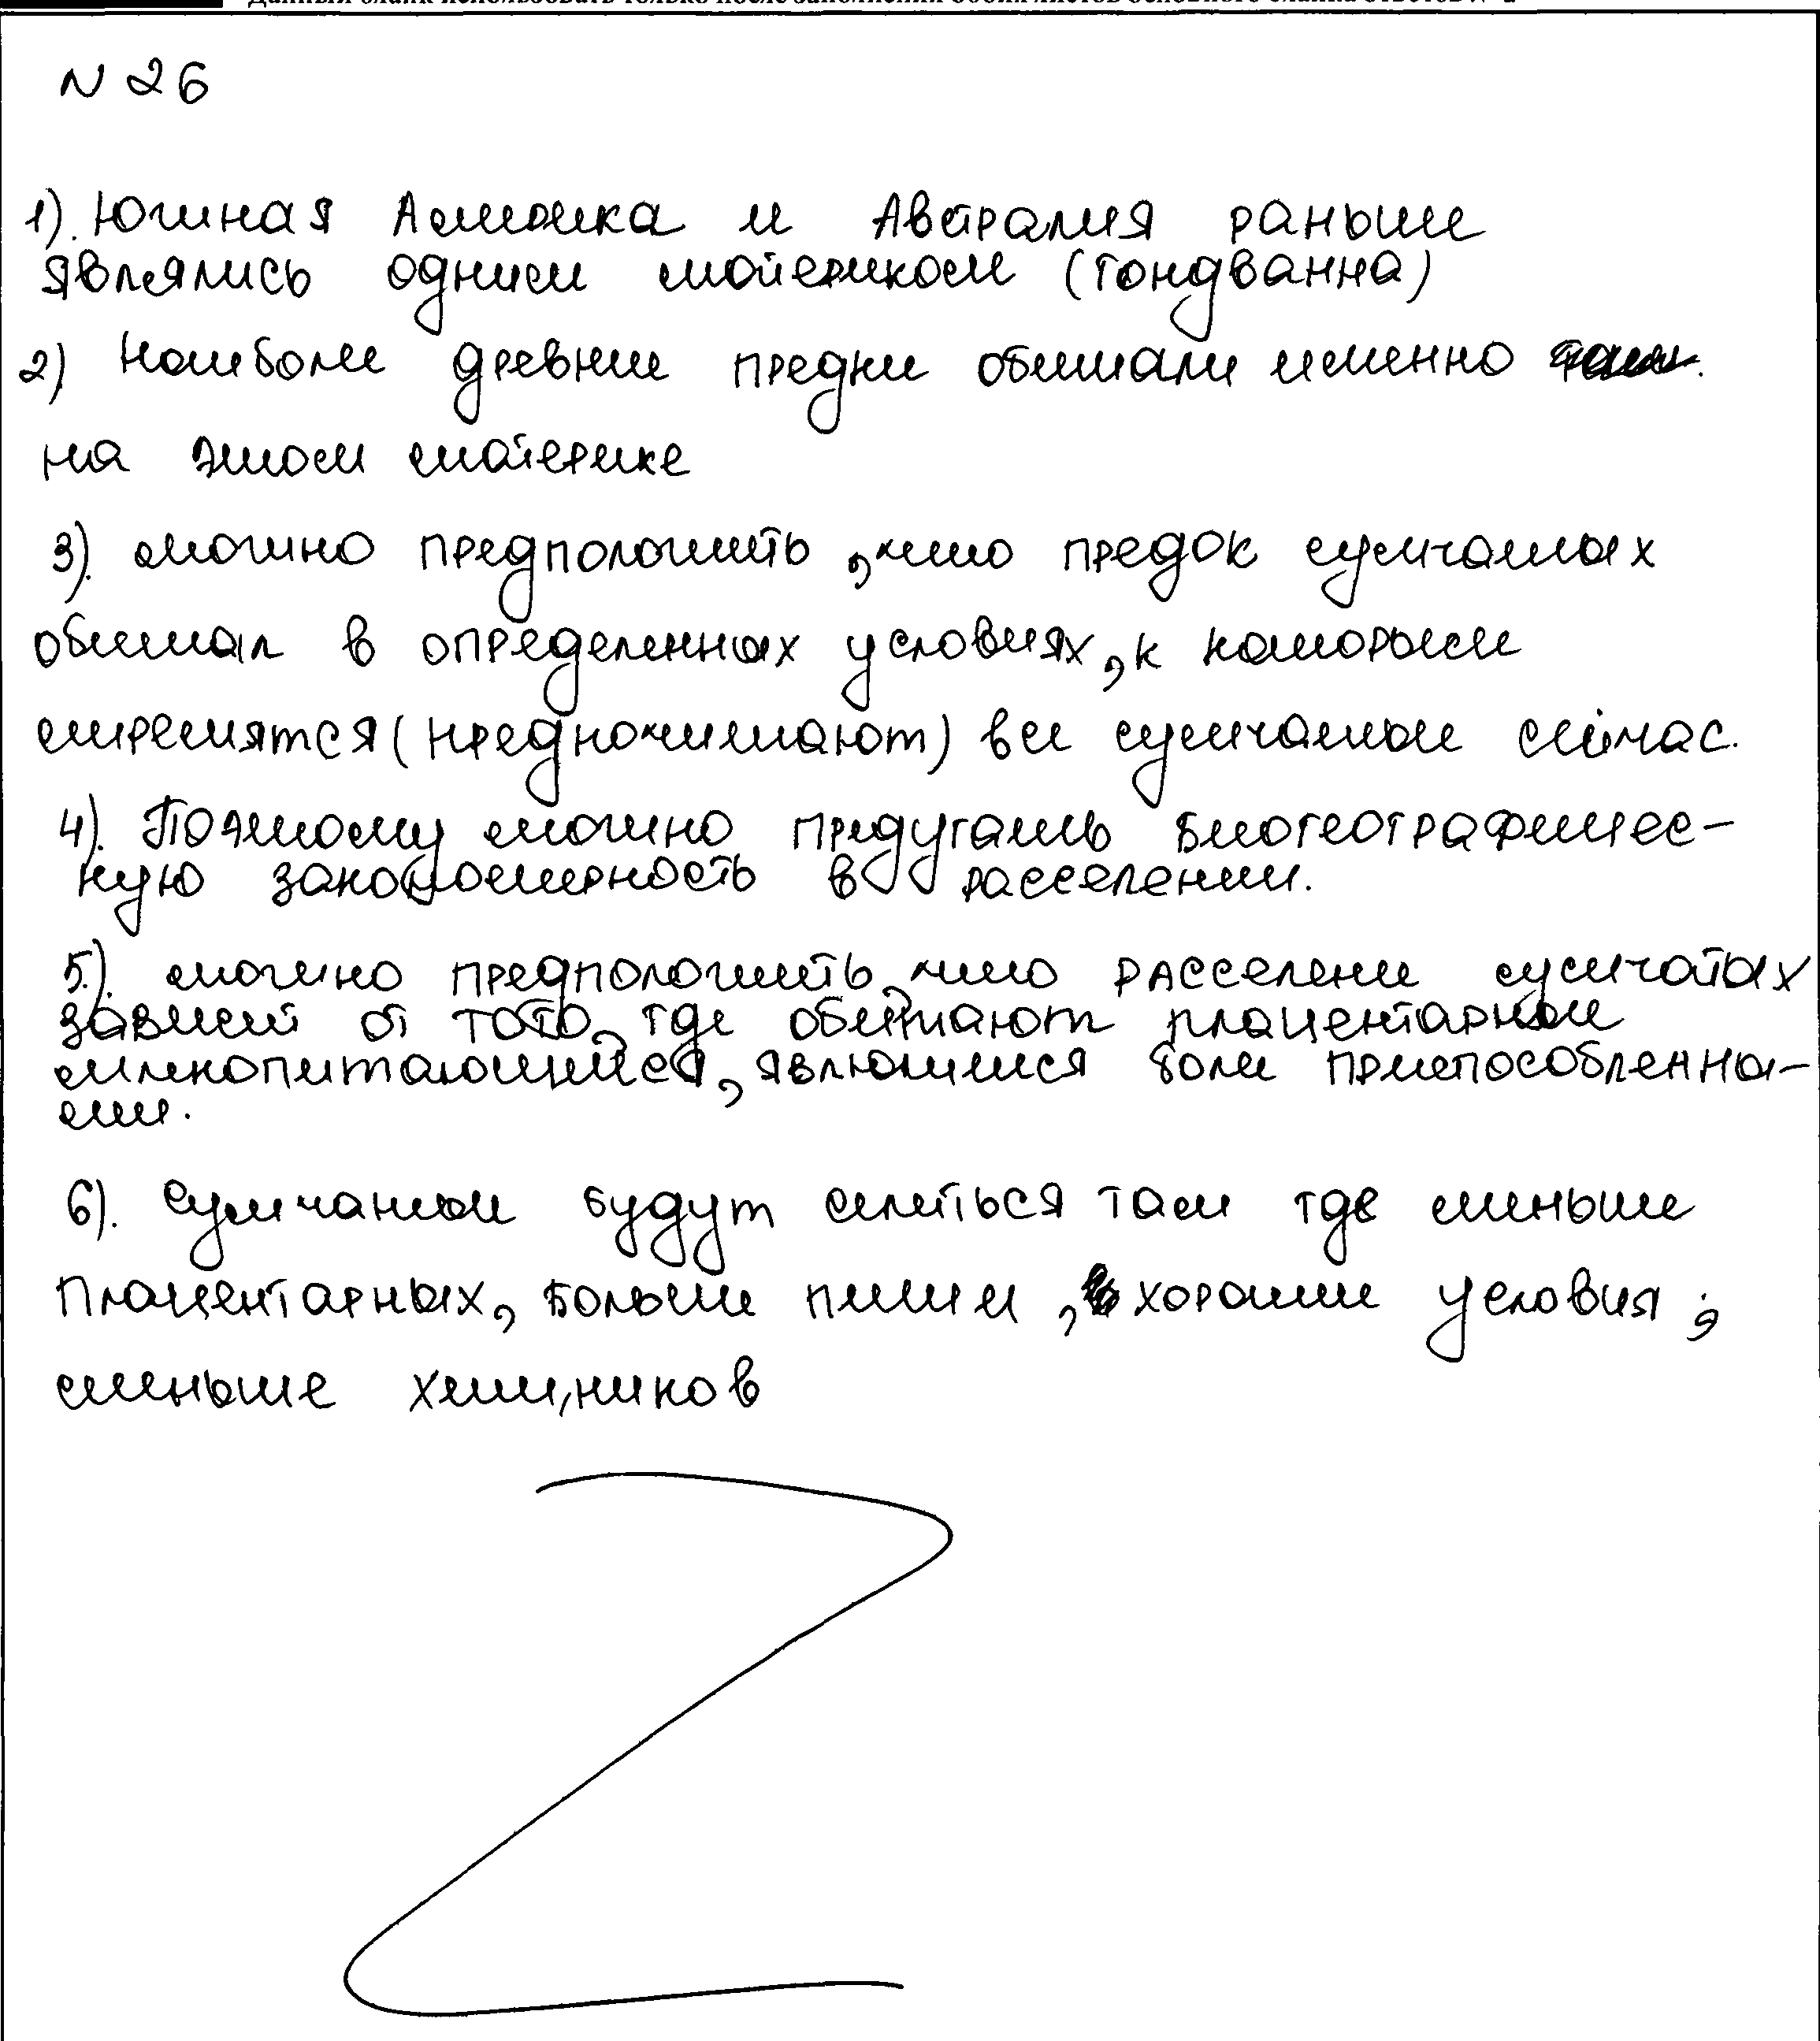 Данный бланк использовать только после заполнения обоих листов основного бланка ответов № 2
N 26
1). Южная Америка и Австралия раньше
являлись одним материком (Гондванна)
2) Наиболее древние предки обитали именно
на этом материке
3). можно предположить, что предок сумчатых
обитал в определенных условиях, к которым
стремятся (предпочитают) все сумчатые сейчас.
4). Поэтому можно предугать биогеографичес-
кую закономерность в расселении.
5). можно предположить, что расселение сумчатых
зависит от того, где обитают плацентарные
млекопитающиеся, являющиеся более приспособленны-
ми.
6). Сумчатые будут селиться там где меньше
плацентарных, больше пищи, хорошие условия,
меньше хищников